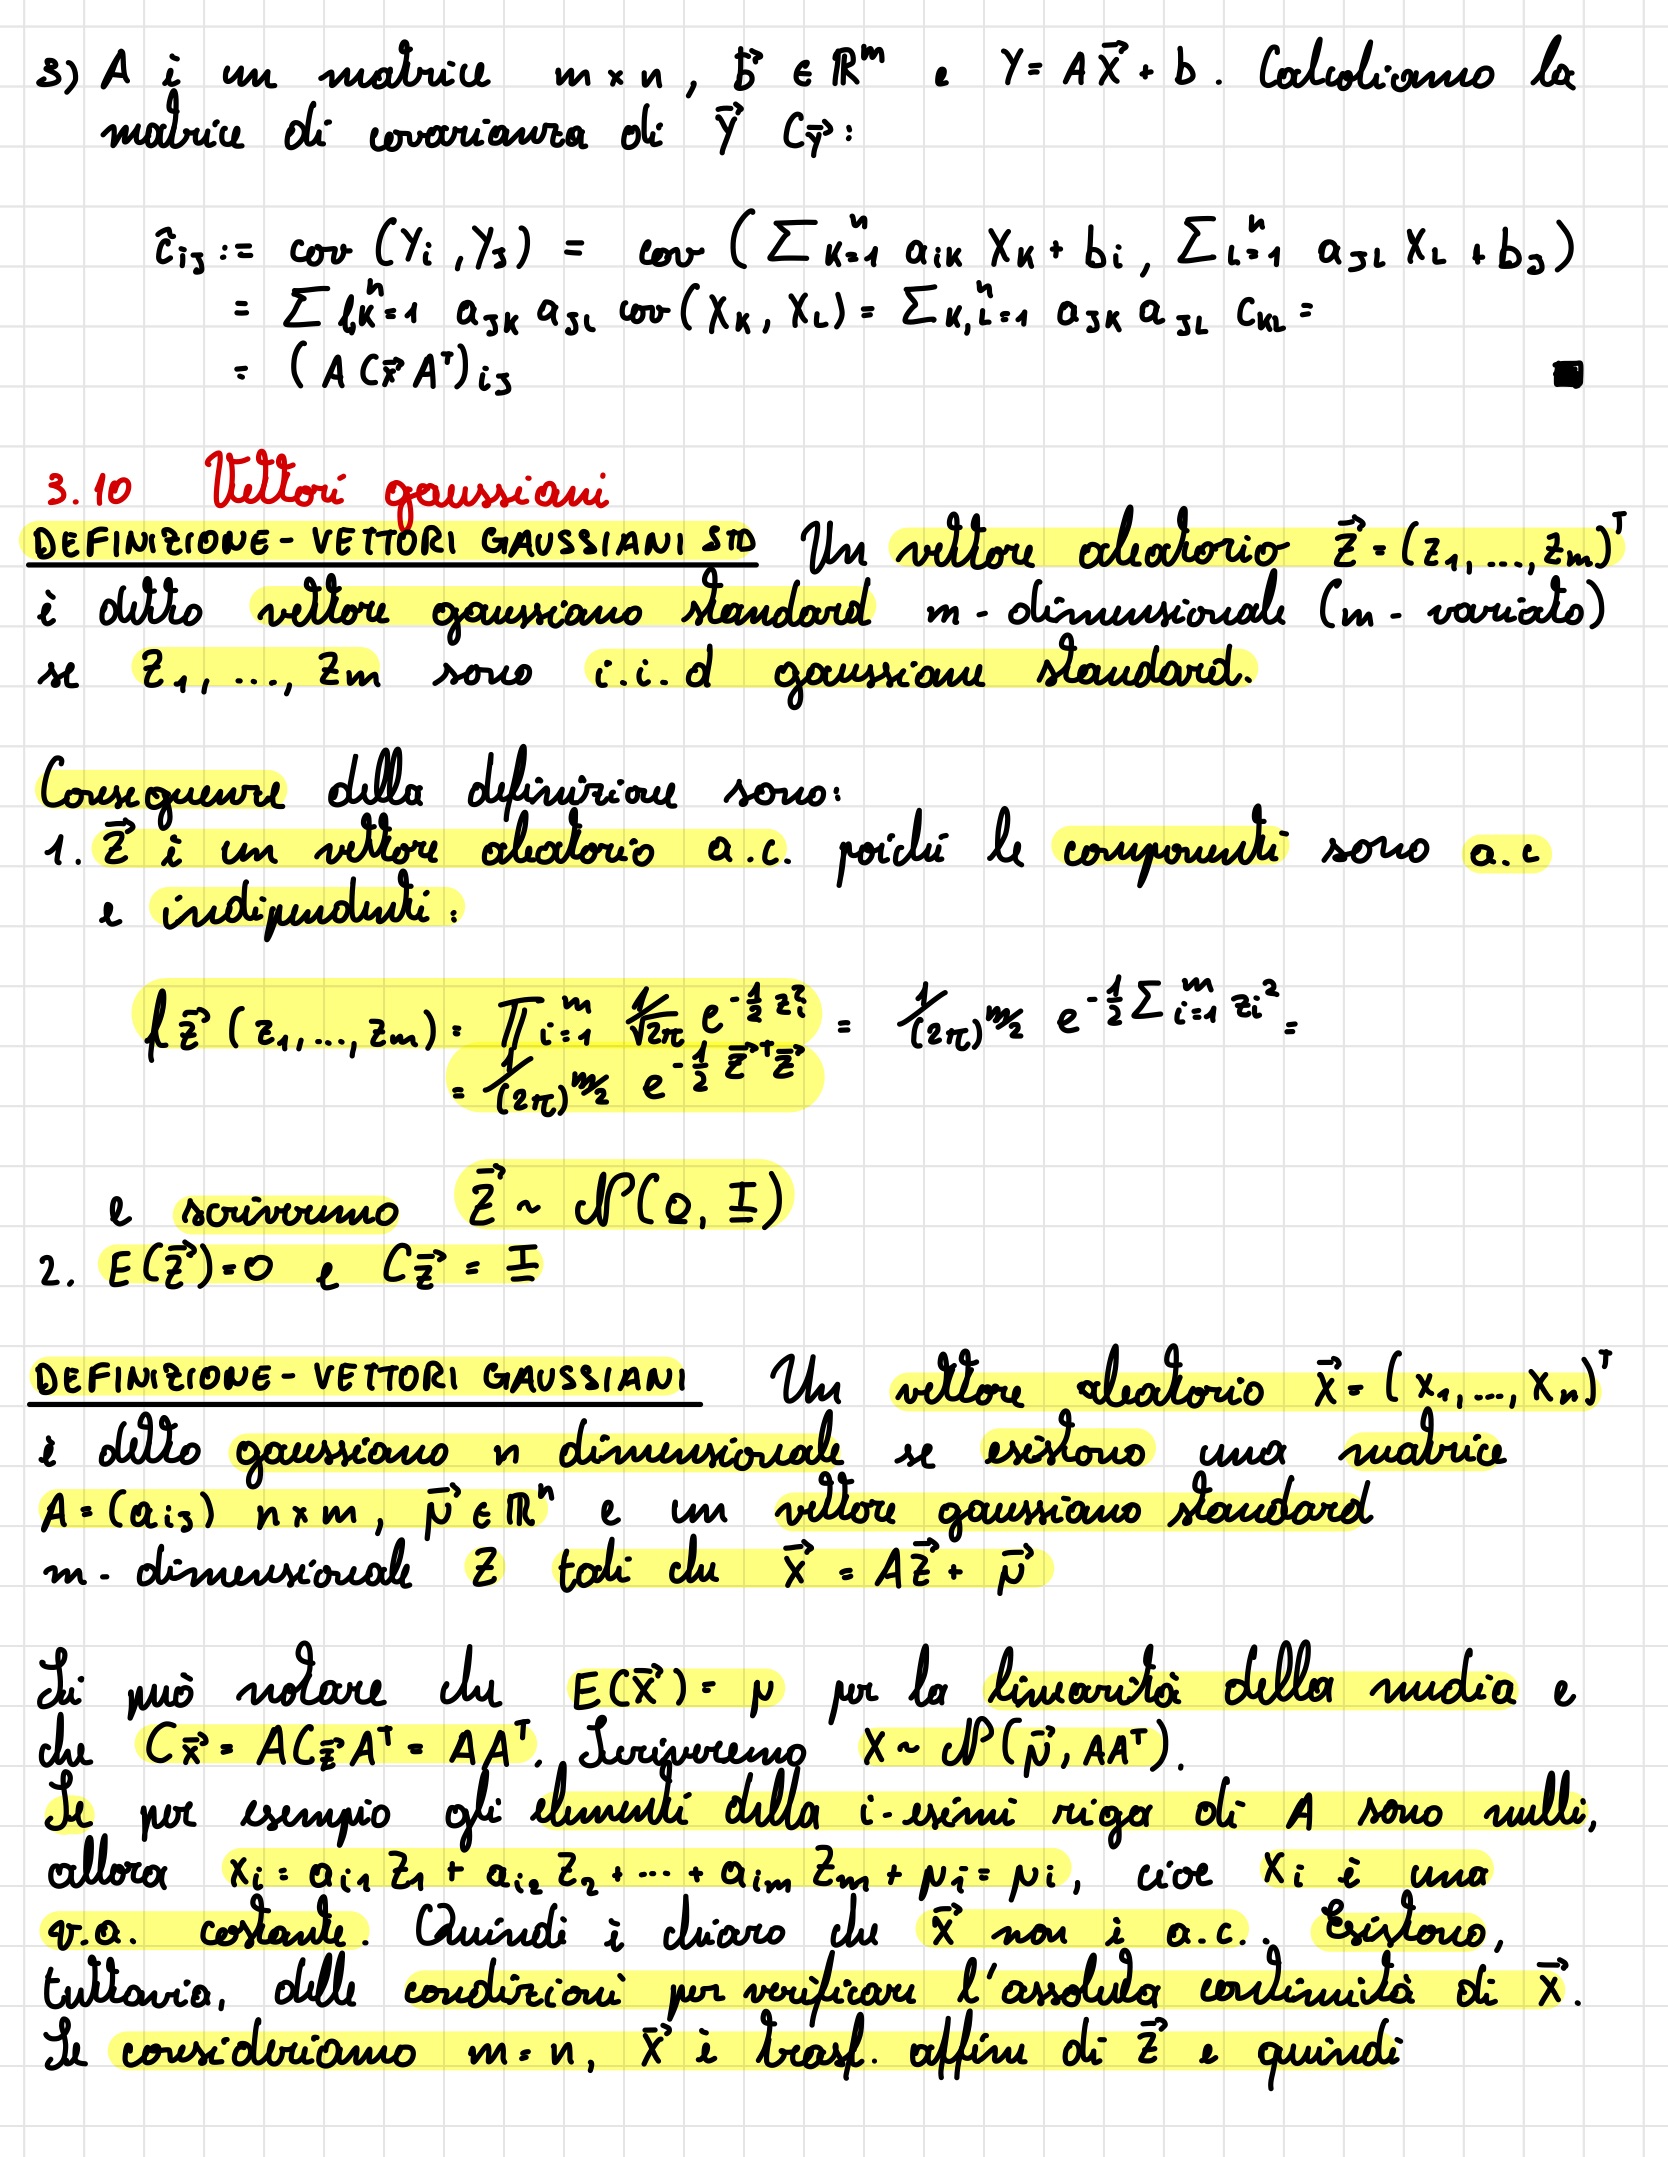 3) A è un matrice m × n, b⃗ ∈ ℝᵐ e Y = A X⃗ + b. Calcoliamo la
matrice di covarianza di Y⃗ C_Y⃗:
ĉ_ij := cov (Y_i, Y_j) = cov (∑_{k=1}^n a_ik X_k + b_i, ∑_{L=1}^n a_jL X_L + b_j)
= ∑_{l,k=1}^n a_jk a_jL cov(X_k, X_L) = ∑_{k,L=1}^n a_jk a_jL C_kL =
= (A C_X⃗ Aᵀ)_ij ■
3.10 Vettori gaussiani
DEFINIZIONE - VETTORI GAUSSIANI STD Un vettore aleatorio Z⃗ = (Z₁, ..., Z_m)ᵀ
è detto vettore gaussiano standard m - dimensionale (m - variato)
se Z₁, ..., Z_m sono i.i.d gaussiane standard.
Conseguenze della definizione sono:
1. Z⃗ è un vettore aleatorio a.c. poiché le componenti sono a.c
e indipendenti:
f_Z⃗ (z₁, ..., z_m) = ∏_{i=1}^m 1/√2π e^{-1/2 z_i²} = 1/(2π)^{m/2} e^{-1/2 ∑_{i=1}^m z_i²} =
= 1/(2π)^{m/2} e^{-1/2 z⃗ᵀz⃗}
e scriveremo Z⃗ ~ 𝒩(0, I)
2. E(Z⃗) = 0 e C_Z⃗ = I
DEFINIZIONE - VETTORI GAUSSIANI Un vettore aleatorio X⃗ = (X₁, ..., X_n)ᵀ
è detto gaussiano n dimensionale se esistono una matrice
A = (a_ij) n × m, μ⃗ ∈ ℝⁿ e un vettore gaussiano standard
m - dimensionale Z tali che X⃗ = AZ⃗ + μ⃗
Si può notare che E(X⃗) = μ per la linearità della media e
che C_X⃗ = AC_Z⃗Aᵀ = AAᵀ. Scriveremo X ~ 𝒩(μ⃗, AAᵀ).
Se per esempio gli elementi della i-esimi riga di A sono nulli,
allora X_i = a_i1 Z₁ + a_i2 Z₂ + ... + a_im Z_m + μ_i = μ_i, cioe X_i è una
v.a. costante. Quindi è chiaro che X⃗ non è a.c.. Esistono,
tuttavia, delle condizioni per verificare l'assoluta continuità di X⃗.
Se consideriamo m = n, X⃗ è trasf. affine di Z⃗ e quindi